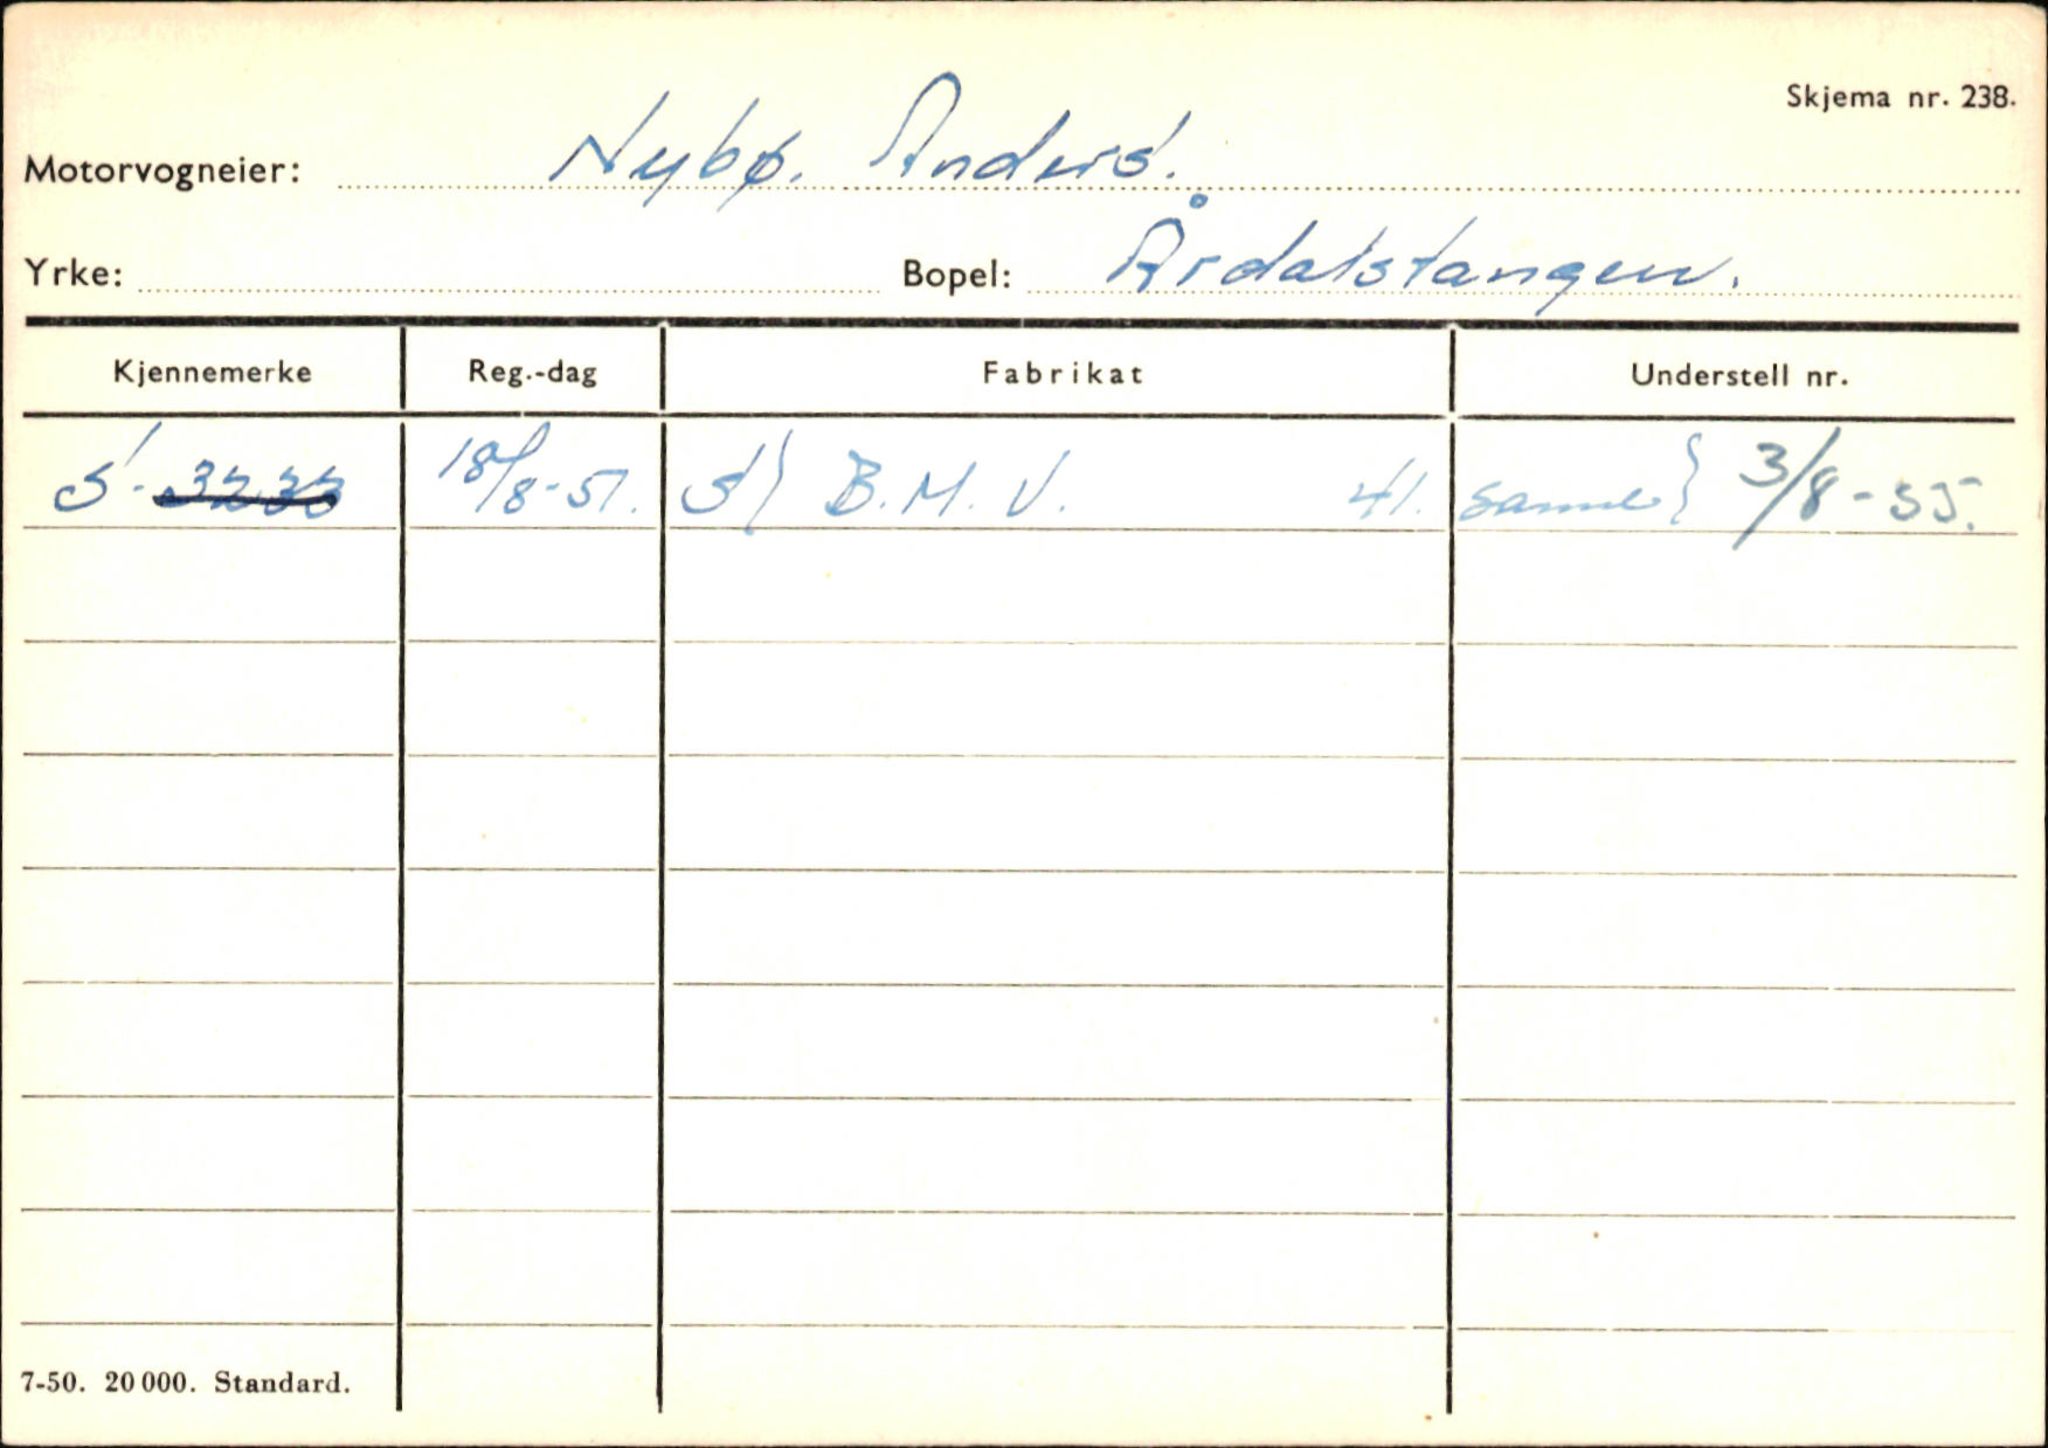 Skjema nr. 238.
Motorvogneier: Nybø. Anders.
Yrke: Bopel: Årdalstangen.
Kjennemerke Reg.-dag Fabrikat Understell nr.
S-3233 18/8-51. S) B.M.V. 41. samme } 3/8-55.
7-50. 20 000. Standard.